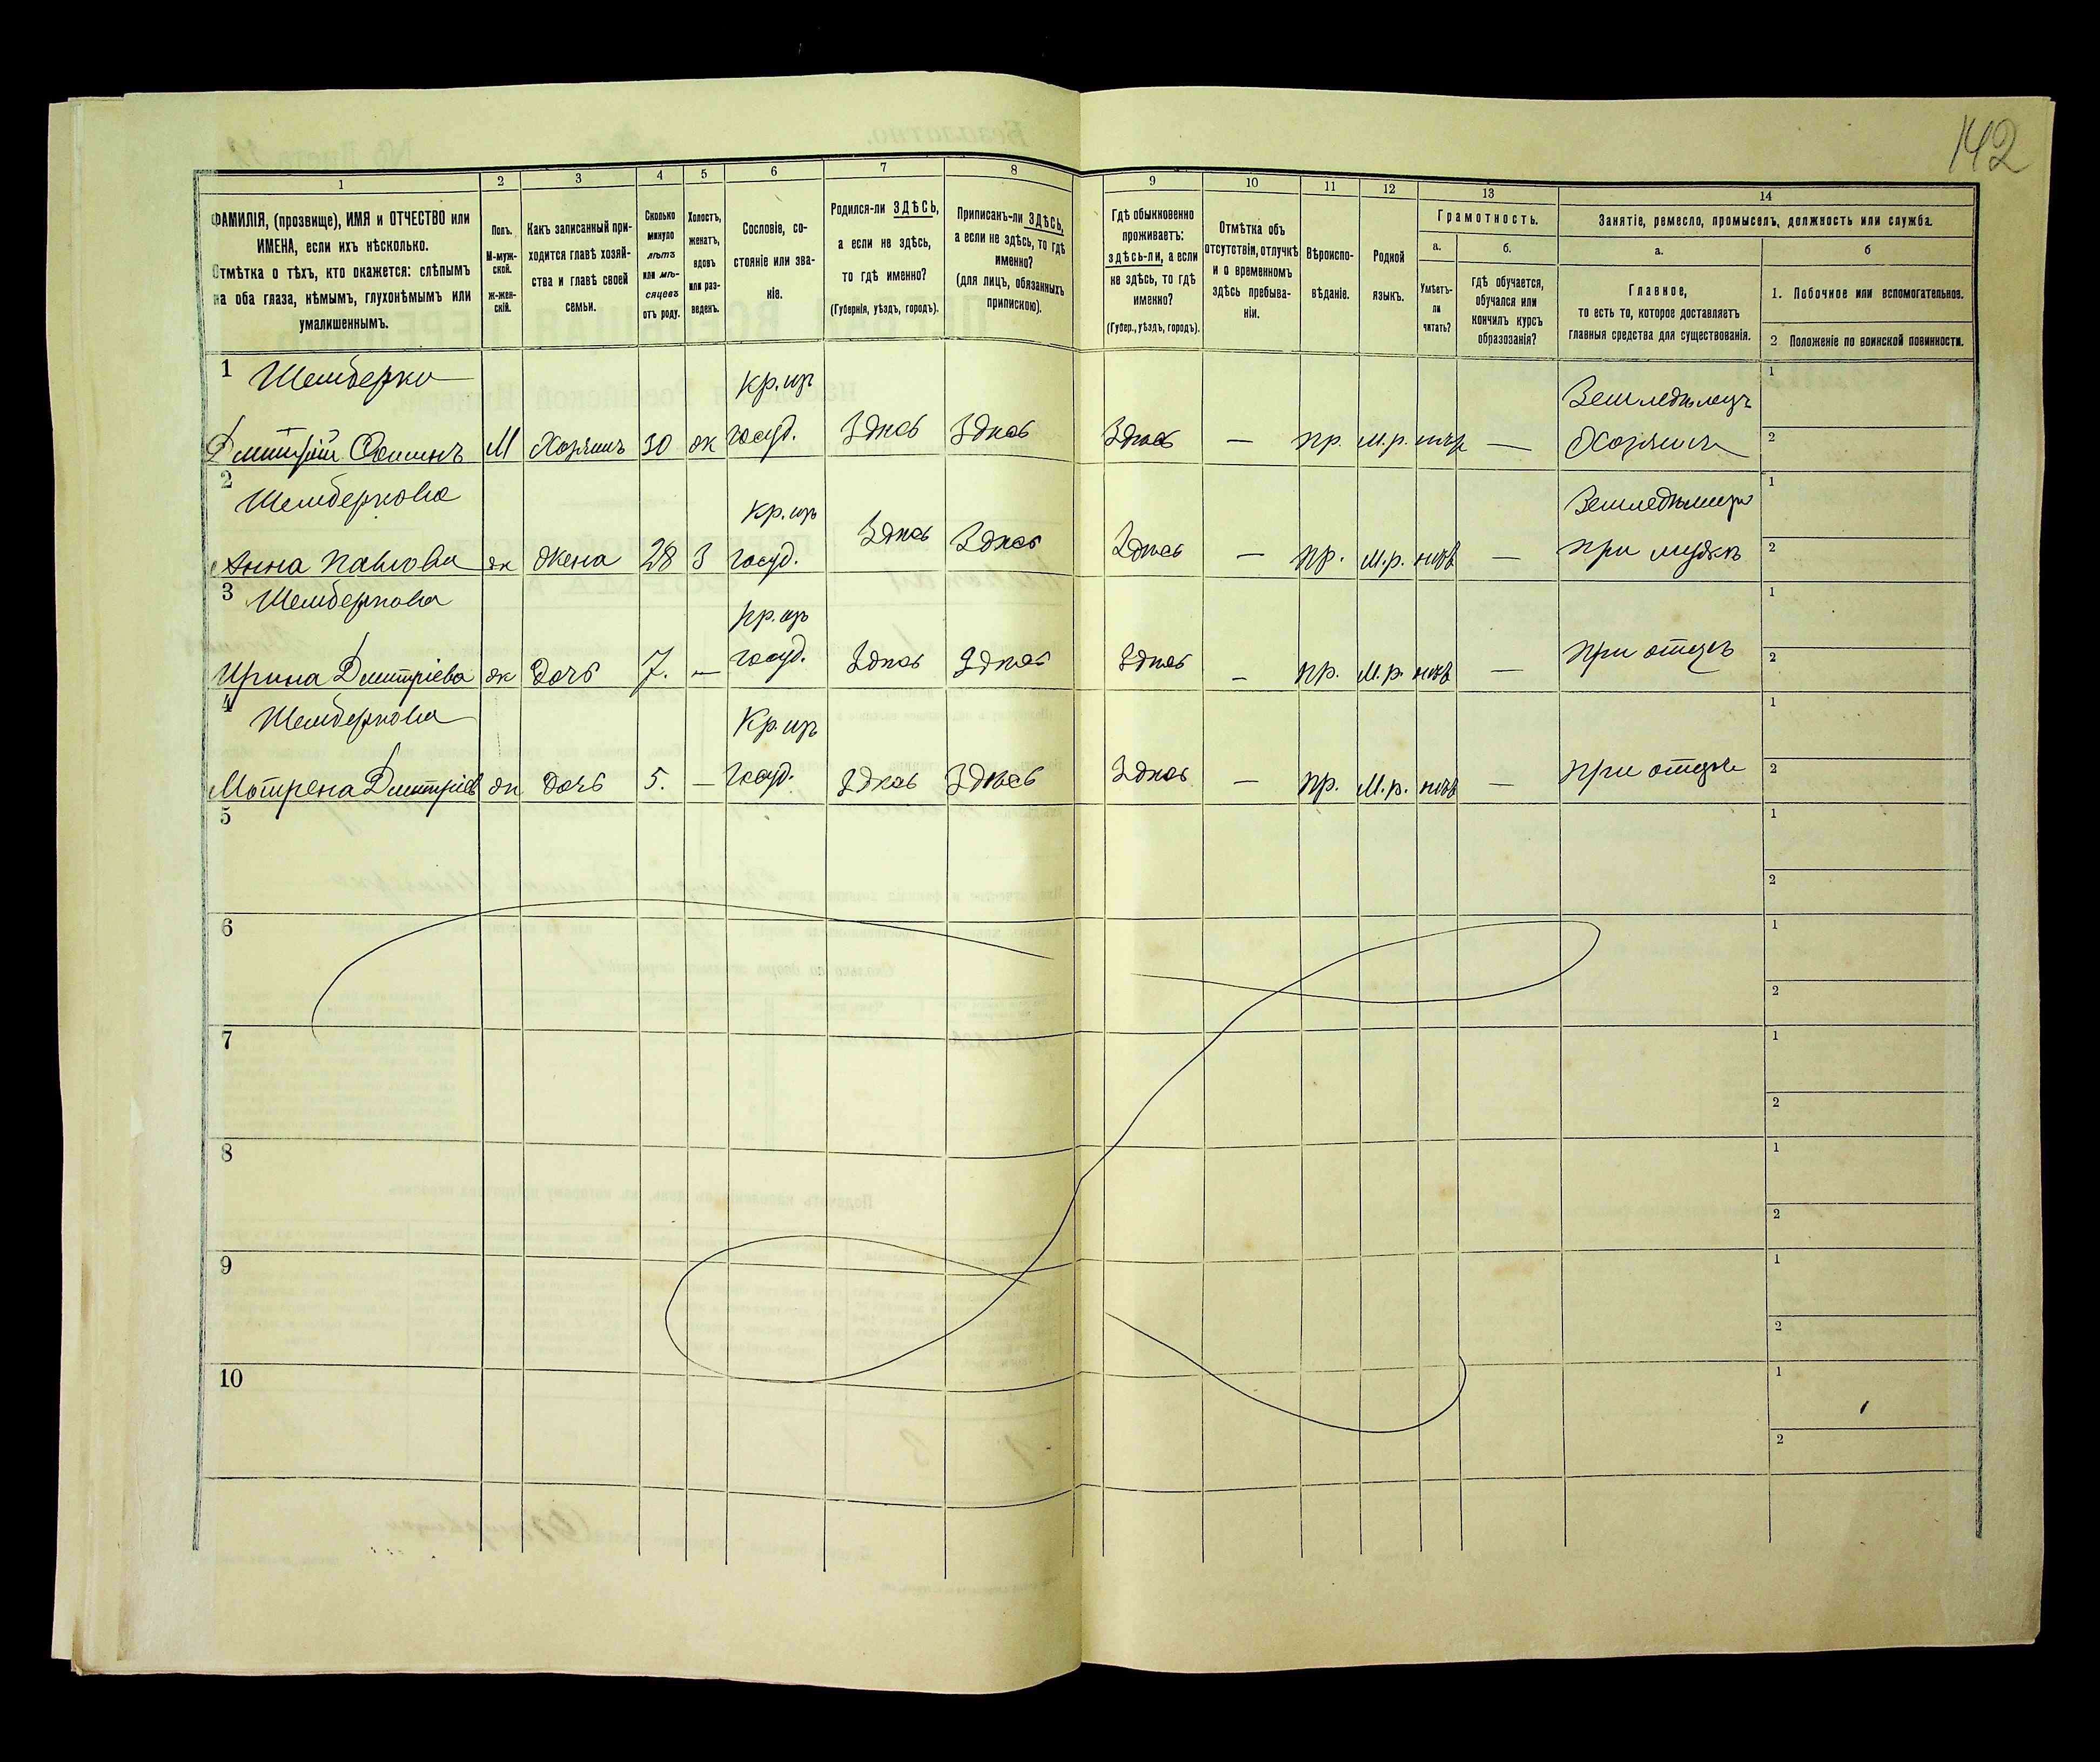 142
1 2 3 4 5 6 7 8 9 10 11 12 13 14
ФАМИЛІЯ, (прозвище), ИМЯ и ОТЧЕСТВО или
ИМЕНА, если ихъ нѣсколько.
Отмѣтка о тѣхъ, кто окажется: слѣпымъ
на оба глаза, нѣмымъ, глухонѣмымъ или
умалишеннымъ.
Полъ.
М-муж-
ской.
ж-жен-
скій.
Какъ записанный при-
ходится главѣ хозяй-
ства и главѣ своей
семьи.
Сколько
минуло
лѣтъ
или мѣ-
сяцевъ
отъ роду.
Холостъ,
женатъ,
вдовъ
или раз-
веденъ.
Сословіе, со-
стояніе или зва-
ніе.
Родился-ли ЗДѢСЬ,
а если не здѣсь,
то гдѣ именно?
(Губернія, уѣздъ, городъ).
Приписанъ-ли ЗДѢСЬ,
а если не здѣсь, то гдѣ
именно?
(для лицъ, обязанныхъ
припискою).
Гдѣ обыкновенно
проживаетъ:
здѣсь-ли, а если
не здѣсь, то гдѣ
именно?
(Губер., уѣздъ, городъ).
Отмѣтка объ
отсутствіи, отлучкѣ
и о временномъ
здѣсь пребыва-
ніи.
Вѣроиспо-
вѣданіе.
Родной
языкъ.
Грамотность.
а.
Умѣетъ-
ли
читать?
б.
Гдѣ обучается,
обучался или
кончилъ курсъ
образованія?
Занятіе, ремесло, промыселъ, должность или служба.
а.
Главное,
то есть то, которое доставляетъ
главныя средства для существованія.
б
1. Побочное или вспомогательное.
2 Положеніе по воинской повинности.
1 Шемберко кр. изъ Земледѣлецъ 1
Дмитрій М Хозяинъ 30 ж госуд. Здѣсь Здѣсь Здѣсь — пр. м.р. — Хозяинъ 2
2 Шемберкова кр. изъ 1
Анна Павлова ж жена 28 З госуд. Здѣсь Здѣсь Здѣсь — пр. м.р. нѣтъ — при мужѣ 2
3 Шемберкова кр. изъ 1
Ирина Дмитріева ж дочь 7. — госуд. Здѣсь Здѣсь Здѣсь — пр. м.р. нѣтъ — при отцѣ 2
4 Шемберкова кр. изъ 1
Мотрена Дмитріев ж дочь 5. — госуд. Здѣсь Здѣсь Здѣсь — пр. м.р. нѣтъ — при отцѣ 2
5 1
2
6 1
2
7 1
2
8 1
2
9 1
2
10 1
2